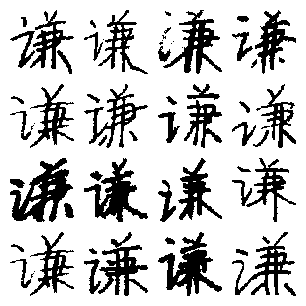 谦 谦 谦 谦
谦 谦 谦 谦
谦 谦 谦 谦
谦 谦 谦 谦